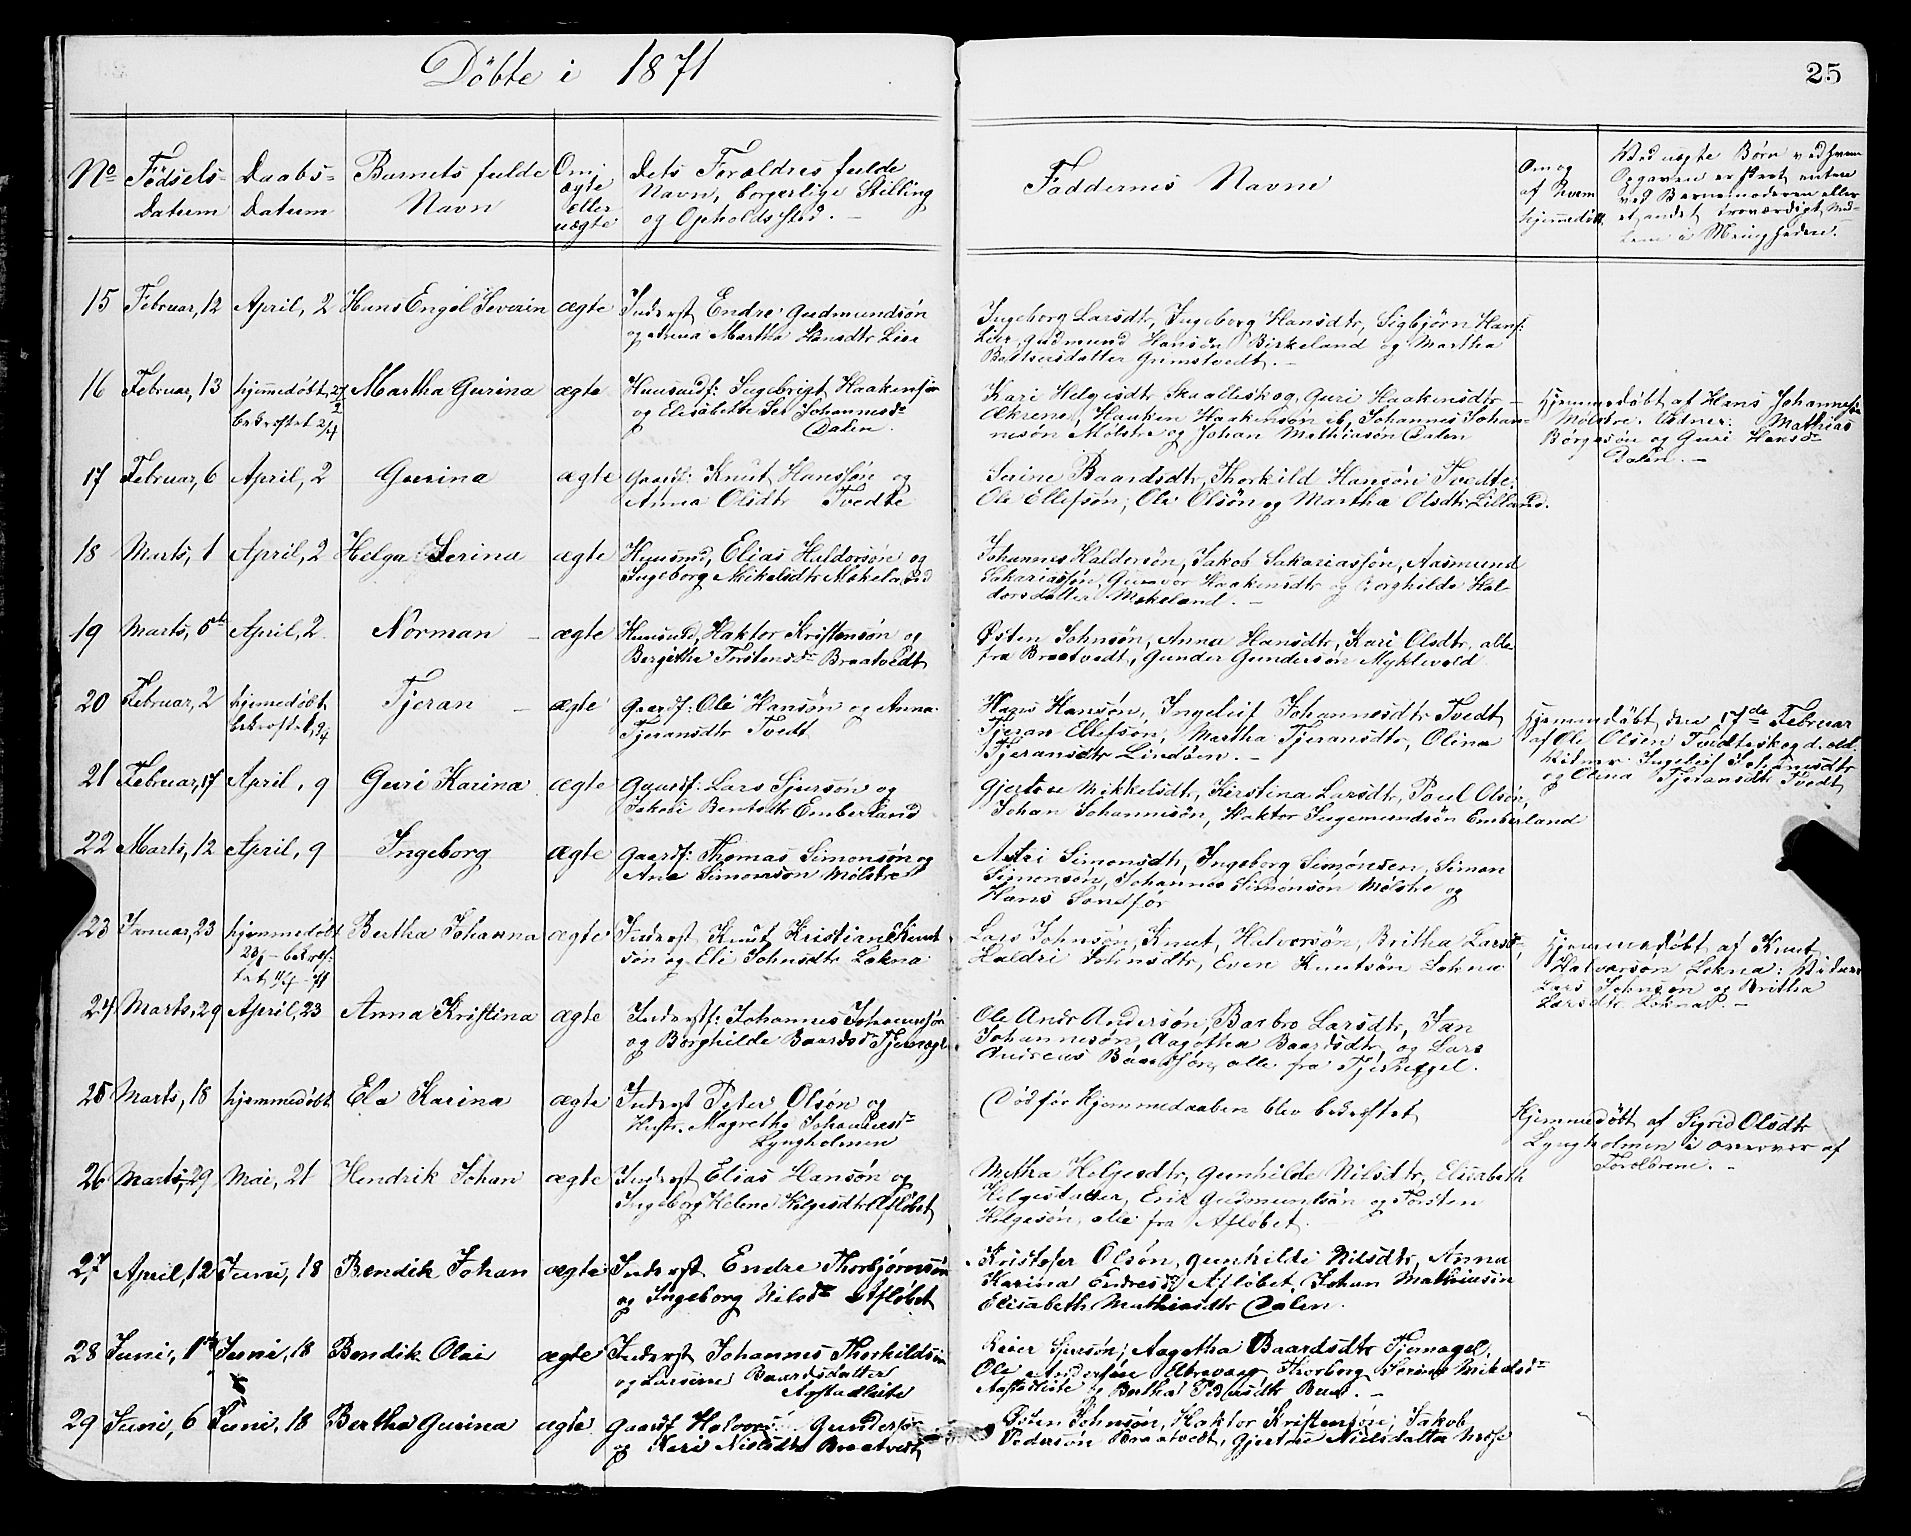 Döbte i 1871
25
No
Fødsels-
Datum
Daabs-
Datum
Barnets fulde
Navn
Om
ægte
eller
uægte
Dets Forældres fulde
Navn, borgerlige Stilling
og Opholdssted. –
Faddernes Navne
Om og
af hvem
hjemmedøbt
Ved uægte Børn ved hvem
Opgaven er skeet, enten
ved Barnemoderen eller
et andet troværdigt Med-
lem i Menigheden.
15 Februar, 12 April, 2 Hans Engel Severin ægte Inderst Endre Gudmundsøn
og Martha Hansdtr Lier
Ingeborg Larsdtr, Ingeborg Hansdtr, Sigbjørn Hans:
Lier, Gudmund Hansøn Birkeland og Martha
Baltsersdatter Grimstvedt. –
16 Februar, 13 hjemmedøbt 27/2 Martha Gurina ægte Huusmdf: Ingebrigt Haakensøn
bekræftet 2/4 og Elisabeth Johannesdr
Dalen
Kari Helgesdtr Skaalleskog, Guri Haakensdtr –
Økrene, Haaken Haakensøn, Johannes Johan-
nesøn Mølstre og Johan Mathiasøn Dalen
Hjemmedøbt af Hans Johannesøn
Mølstre. Vidner: Mathias
Børgesøn og Guri Hansdr
Dalen. –
17 Februar, 6 April, 2 Gurina ægte Gaardf: Knut Hansøn og
Anna Olsdtr Tvedte
Serine Baardsdtr, Thorkild Hansøn Tvedte,
Ole Ellefsøn, Ole Olsøn og Martha Olsdtr Lilland.
18 Marts, 1 April, 2 Helga Serina ægte Huusmd, Elias Haldorsøn og
Ingeborg Mikelsdtr Møkeland
Johannes Haldorsøn, Jakob Sakariassøn, Aasmund
Sakariassøn, Gunvor Haakensdtr og Borghilde Hal-
dorsdatter Møkeland. –
19 Marts, 5te April, 2 Norman – ægte Huusmd, Haktor Kristensøn og
Bergithe Torstensdr Braatvedt
Østen Johnsøn, Anna Hansdtr, Kari Olsdtr, alle
fra Braatvedt, Gunder Gundersøn Myklevold
20 Februar, 2 hjemmedøbt Tjeran – ægte Gaardf: Ole Hansøn og Anna
bekræftet 9/4 Tjeransdtr Tvedt
Hans Hansøn, Ingeleif Johannesdtr Tvedt
Tjeran Ellefsøn, Martha Tjeransdtr, Olina
Tjeransdtr Lindøen. –
Hjemmedøbt den 17de Februar
af Ole Olsen Tvedteskog d. æld.
Vidner: Ingeleif Johannesdtr
og Olina Tjeransdtr Tvedt
21 Februar, 17 April, 9 Guri Karina ægte Gaardf: Lars Sjursøn og
Bentsdtr Emberland
Gjertrue Mikkelsdtr, Kirstina Larsdtr, Poul Olsøn,
Johan Johannesøn, Haktor Ingemundsøn Emberland
22 Marts, 12 April, 9 Ingeborg ægte Gaardf: Thomas Simonsøn og
Ane Simonsøn Mølstre
Astri Simonsdtr, Ingeborg Simonsen, Simon
Simonsøn, Johannes Simonsøn Mølstre og
Hans Søndfør
23 Januar, 23 hjemmedøbt Bertha Johanna ægte Inderst Knut Kristian Knut-
23/1 – bekræf- søn og Eli Johnsdtr Løkna
tet 11/4 – 71
Lars Johnsøn, Knut Halvorsøn, Britha Larsd,
Haldri Johnsdtr, Even Knutsøn Løkna
Hjemmedøbt af Knut
Halvorsøn Løkna: Vidner
Lars Johnsøn og Britha
Larsdtr Løkna. –
24 Marts, 29 April, 23 Anna Kristina ægte Inderstf: Johannes Johannesøn
og Borghilde Baardsdr Tjernagel
Ole Andr Andersøn, Barbro Larsdtr, Jan
Johannesøn, Aagotha Baardsdtr, og Lars
Andreas Baardsøn, alle fra Tjernagel.
25 Marts, 18 hjemmedøbt Ela Karina ægte Inderst Peter Olsøn og
Hustr. Magrethe Johannesdr
Lyngholmen
Død før hjemmedaaben blev bekræftet
Hjemmedøbt af Sigrid Olsdtr
Lyngholmen i overvær af
Forældrene. –
26 Marts, 29 Mai, 21 Hendrik Johan ægte Inderst Elias Hansøn og
Ingeborg Helene Helgesdtr Afløbet
Metha Helgesdtr, Gunhilde Nilsdtr, Elisabeth
Helgesdatter, Erik Gudmundsøn og Torsten
Helgesøn, alle fra Afløbet. –
27 April, 12 Juni, 18 Bendik Johan ægte Inderst Endre Thorbjørnsøn
og Ingeborg Nilsdr Afløbet
Kristofer Olsøn, Gunhilde Nilsdtr, Anna
Karina Endresdr Afløbet, Johan Mathiasøn
Elisabeth Mathiasdtr Dalen.
28 Juni, 1 Juni, 18 Bendik Olai ægte Inderst Johannes Thorkildsøn
og Larsine Baardsdatter
Agstadleite
Reier Sjursøn, Aagotha Baardsdtr Tjernagel,
Ole Andersøn, Thorborg Serine Mikalsdr
Agstadleite og Bertha –
29 Juni, 6 Juni, 18 Bertha Gurina ægte Gaardf Halvor Gundersøn
og Kari Nielsdtr Braatvedt
Østen Johnsøn, Haktor Kristensøn, Jakob
Pedersøn Braatvedt, Gjertrue Nielsdatter